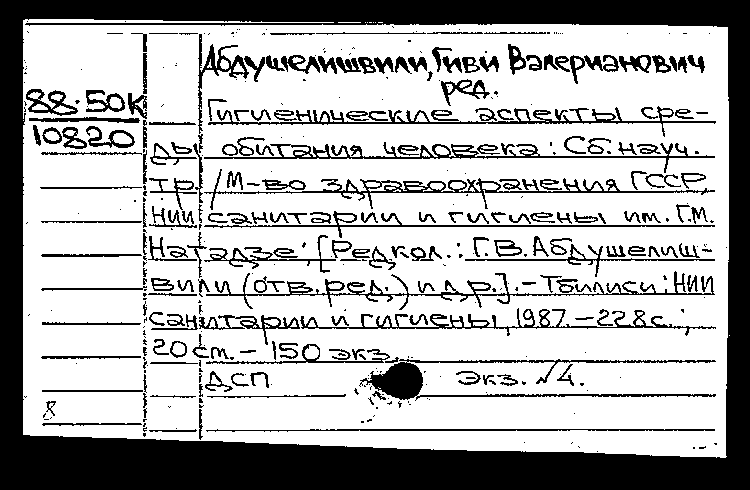 Абдушелишвили, Гиви Валерианович
ред.
88.50К
10820
Гигиенические аспекты сре-
ды обитания человека: Сб. науч.
тр. / М-во здравоохранения ГССР,
НИИ санитарии и гигиены им. Г.М.
Натадзе; [Редкол.: Г.В. Абдушелиш-
вили (отв. ред.) и др.]. - Тбилиси: НИИ
санитарии и гигиены, 1987. - 228 с.;
20 ст. - 150 экз.
ДСП экз. №4.
8